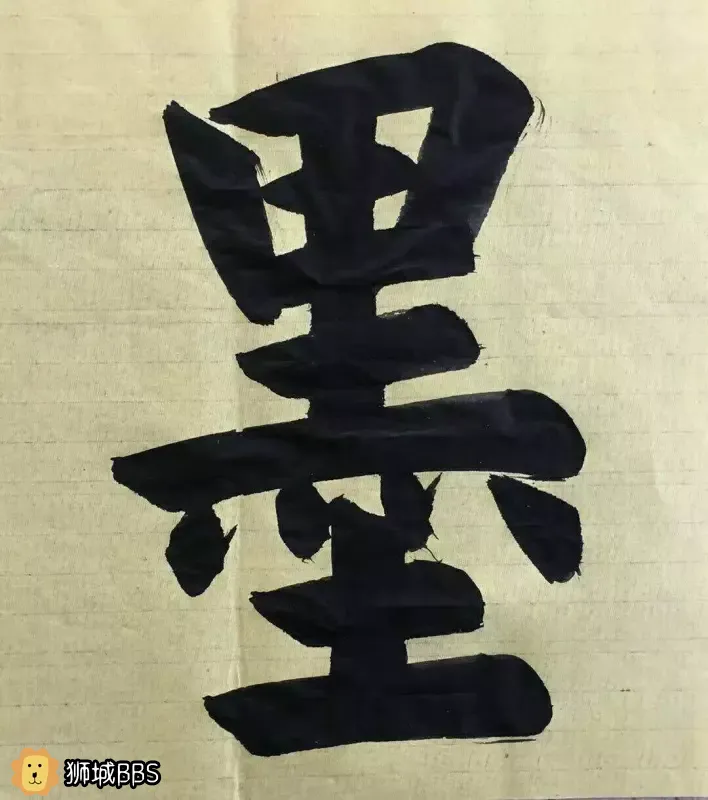 墨
狮城BBS